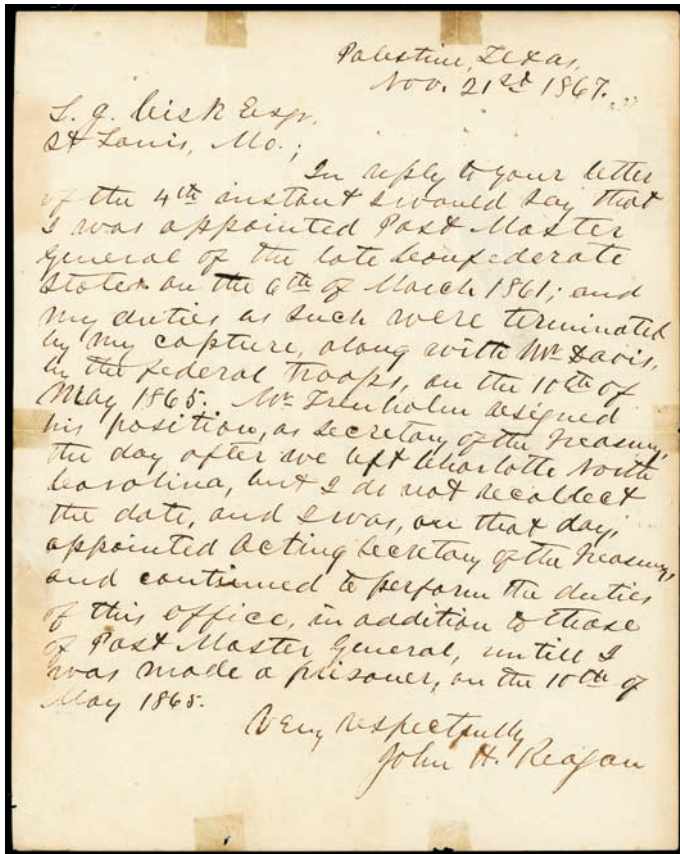 Palestine, Texas,
Nov. 21st 1867.
L. A. Cisk Esqr.
St Louis, Mo.;
In reply to your letter
of the 4th instant I would say that
I was appointed Post Master
General of the late Confederate
States on the 6th of March 1861; and
my duties as such were terminated
by my capture, along with Mr Davis,
by the federal troops, on the 10th of
May 1865. Mr Trenholm resigned
his position, as Secretary of the Treasury,
the day after we left Charlotte North
Carolina, but I do not recollect
the date, and I was, on that day,
appointed Acting Secretary of the Treasury,
and continued to perform the duties
of this office, in addition to those
of Post Master General, untill I
was made a prisoner, on the 10th of
May 1865.
Very respectfully
John H. Reagan